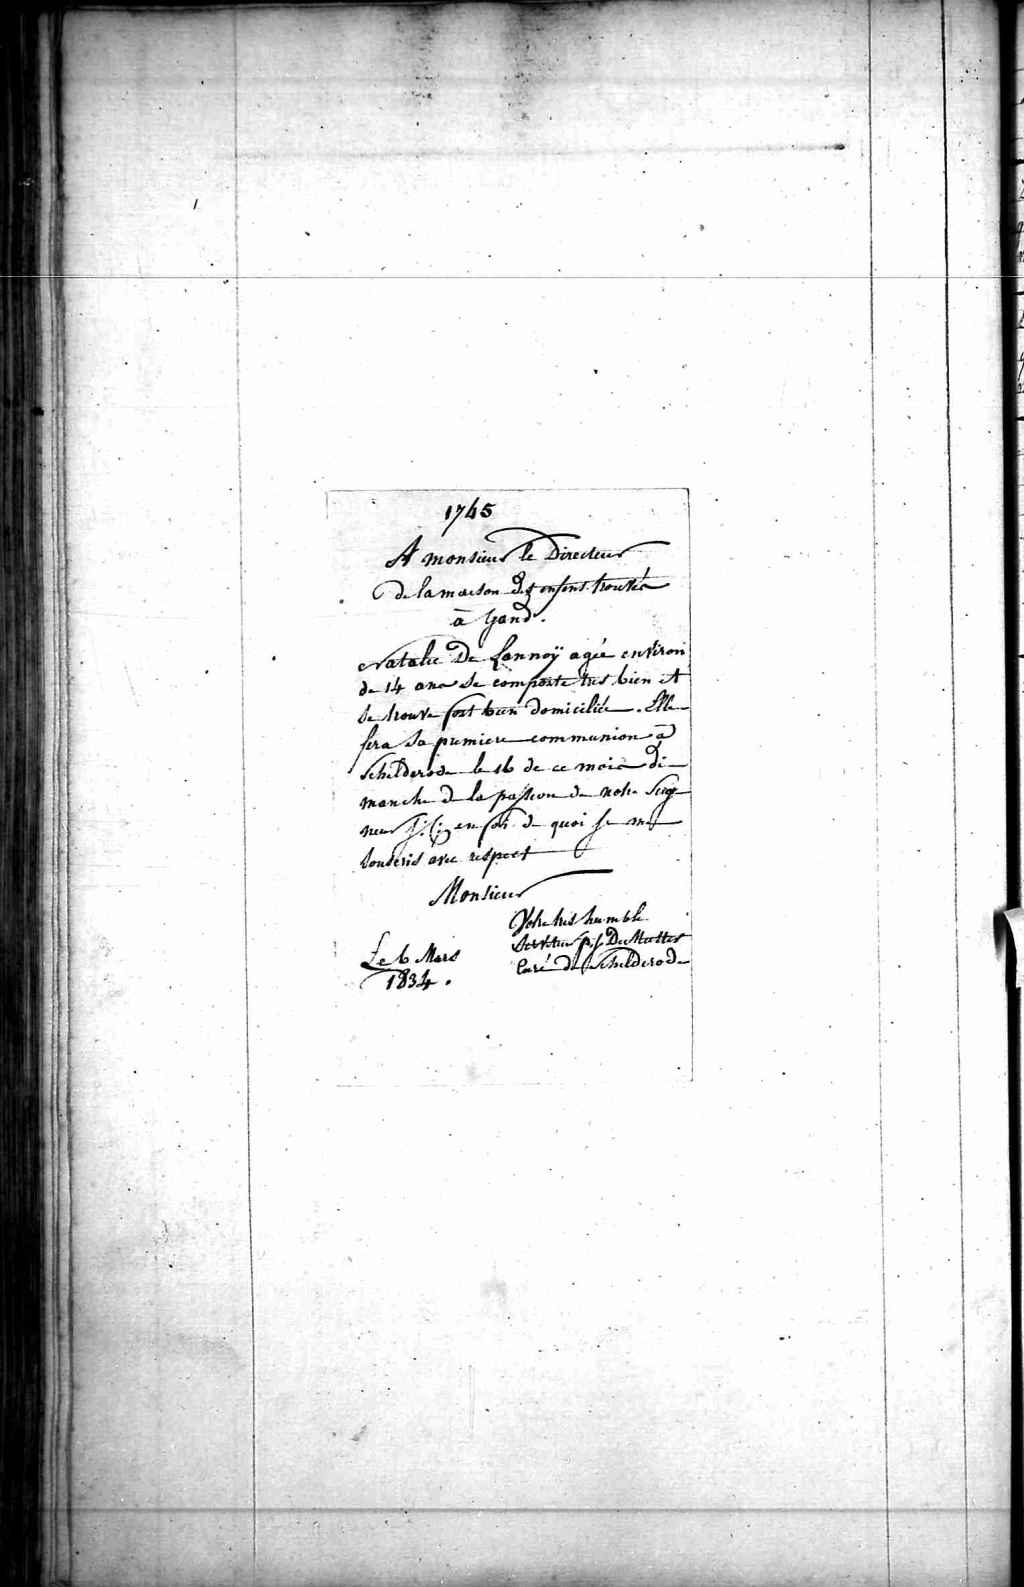 1745
A monsieur le Directeur
de la maison des enfens trouvés
à Gand.
Natalie De Lannoÿ agée environ
de 14 ans se comporte tres bien et
se trouve fort bien domiciliée. Elle
fera sa premiere communion à
Schilderode le 16 de ce mois di-
manche de la passion de notre Seig-
neur J: C: en foi de quoi je me
souscris avec respect
Monsieur
Votre tres humble
serviteur p. j. De Mutter
Curé de Schilderode
Le 6 Mars
1834.